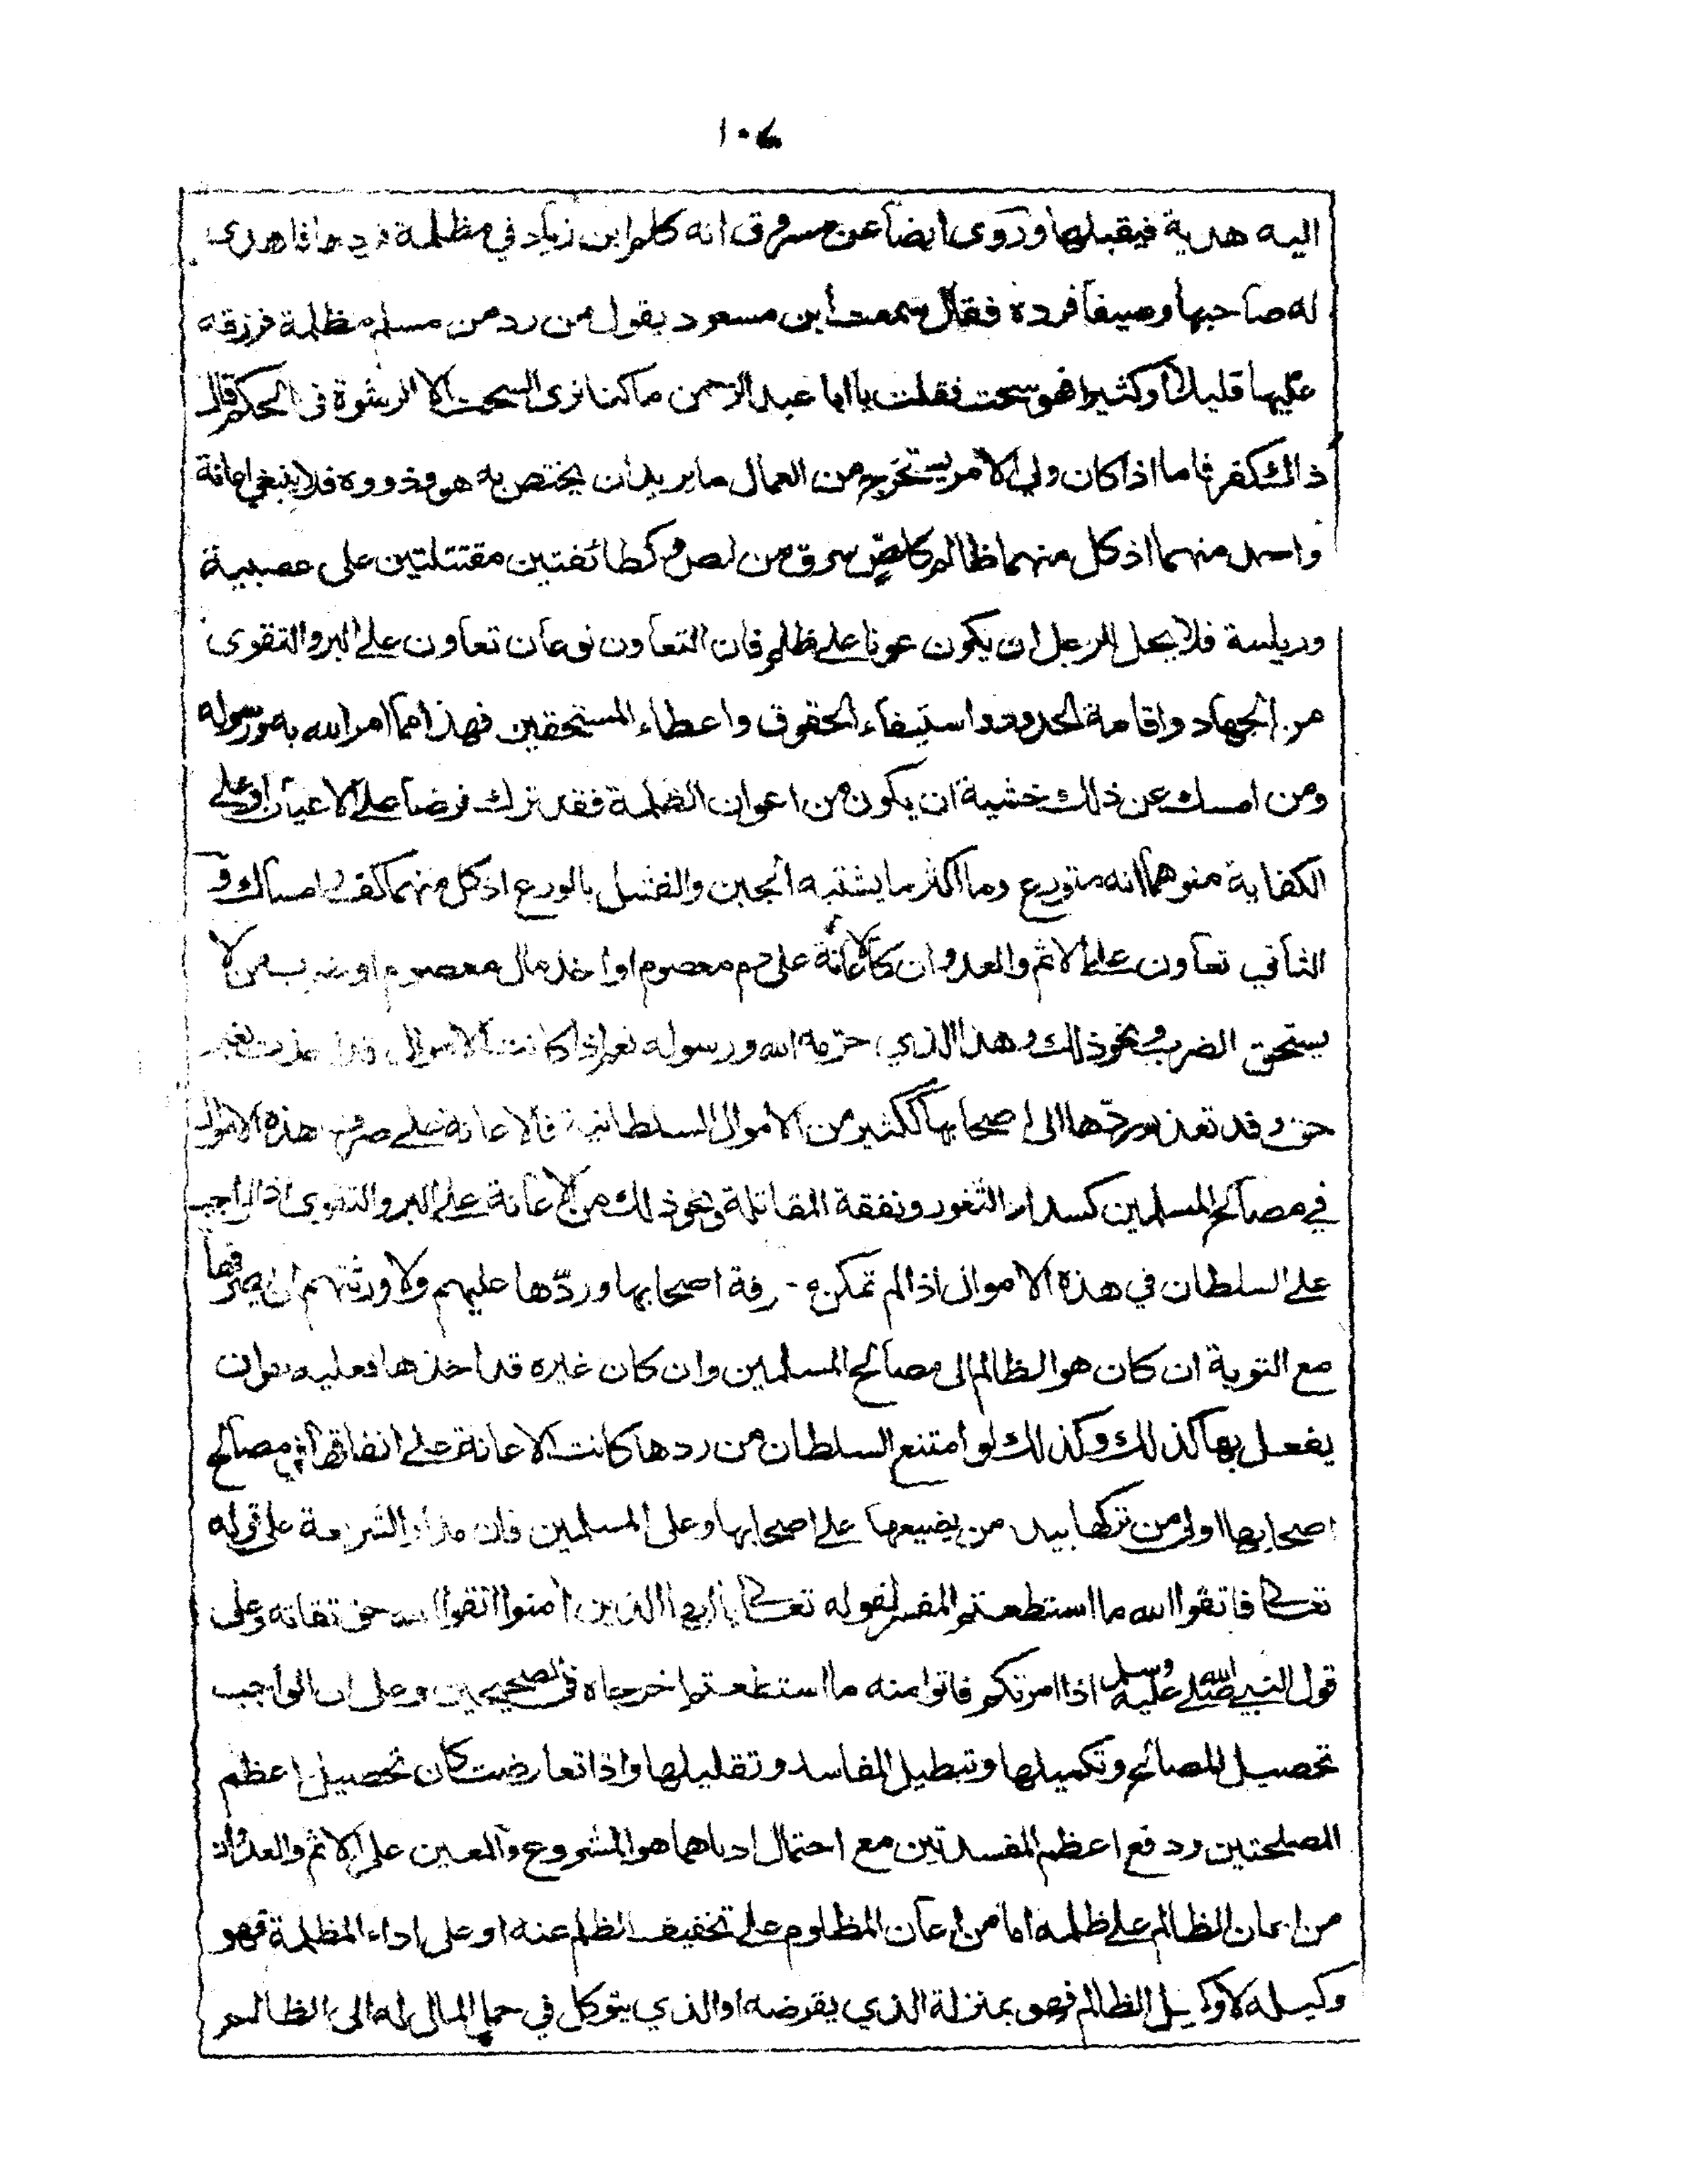 ١٠٤
اليه هدية فيقبلها وروى ايضا عن مسروق انه كلم ابن زياد في مظلمة فردها فاهدى
له صاحبها وصيفا فرده فقال سمعت ابن مسعود يقول من رد من مسلم مظلمة فرزقه
عليها قليلا او كثيرا فهو سحت فقلت يا ابا عبد الرحمن ما كنا نرى السحت الا الرشوة في الحكم قال
ذالك كفر فاما اذا كان ولي الامر يستخرج من العمال ما يريد ان يختص به هو وذووه فلا ينبغي اعانة
واحد منهما اذ كل منهما ظالم كلصٍّ سرق من لص وكطائفتين مقتتلتين على عصبية
ورياسة فلا يحل للرجل ان يكون عونا على ظلم فان التعاون نوعان تعاون على البر والتقوى
من الجهاد واقامة الحدود واستيفاء الحقوق واعطاء المستحقين فهذا مما امر الله به ورسوله
ومن امسك عن ذلك خشية ان يكون من اعوان الظلمة فقد ترك فرضا على الاعيان او على
الكفاية متوهما انه متورع وما اكثر ما يشتبه الجبن والفشل بالورع اذ كل منهما كف وامساك و
الثاني تعاون على الاثم والعدوان كالاعانة على دم معصوم او اخذ مال معصوم او ضرب من لا
يستحق الضرب ونحو ذلك وهذا الذي حرّمه الله ورسوله نعم اذا كانت الاموال قد اخذت بغير
حق وقد تعذر ردّها الى اصحابها ككثير من الأموال السلطانية فالاعانة على صرف هذه الاموال
في مصالح المسلمين كسداد الثغور ونفقة المقاتلة ونحو ذلك من الاعانة على البر والتقوى اذ الواجب
على السلطان في هذه الاموال اذا لم تمكن معرفة اصحابها وردّها عليهم ولا ورثتهم ان يصرفها
مع التوبة ان كان هو الظالم الى مصالح المسلمين وان كان غيره قد اخذها فعليه هو ان
يفعل بها كذلك وكذلك لو امتنع السلطان من ردها كانت الاعانة على انفاقها في مصالح
اصحابها اولى من تركها بيد من يضيعها على اصحابها وعلى المسلمين فان مدار الشريعة على قوله
تعالى فاتقوا الله ما استطعتم المفسر لقوله تعالى يا ايها الذين امنوا اتقوا الله حق تقاته وعلى
قول النبي صلى الله عليه وسلم اذا امرتكم فاتوا منه ما استطعتم اخرجاه في الصحيحين وعلى ان الواجب
تحصيل المصالح وتكميلها وتبطيل المفاسد وتقليلها واذا تعارضت كان تحصيل اعظم
المصلحتين ودفع اعظم المفسدتين مع احتمال ادناهما هو المشروع والمعين على الاثم والعدوان
من اعان الظالم على ظلمه اما من اعان المظلوم على تخفيف الظلم عنه او على اداء المظلمة فهو
وكيله لا وكيل الظالم فهو بمنزلة الذي يقرضه او الذي يتوكل في حمل المال له الى الظالم